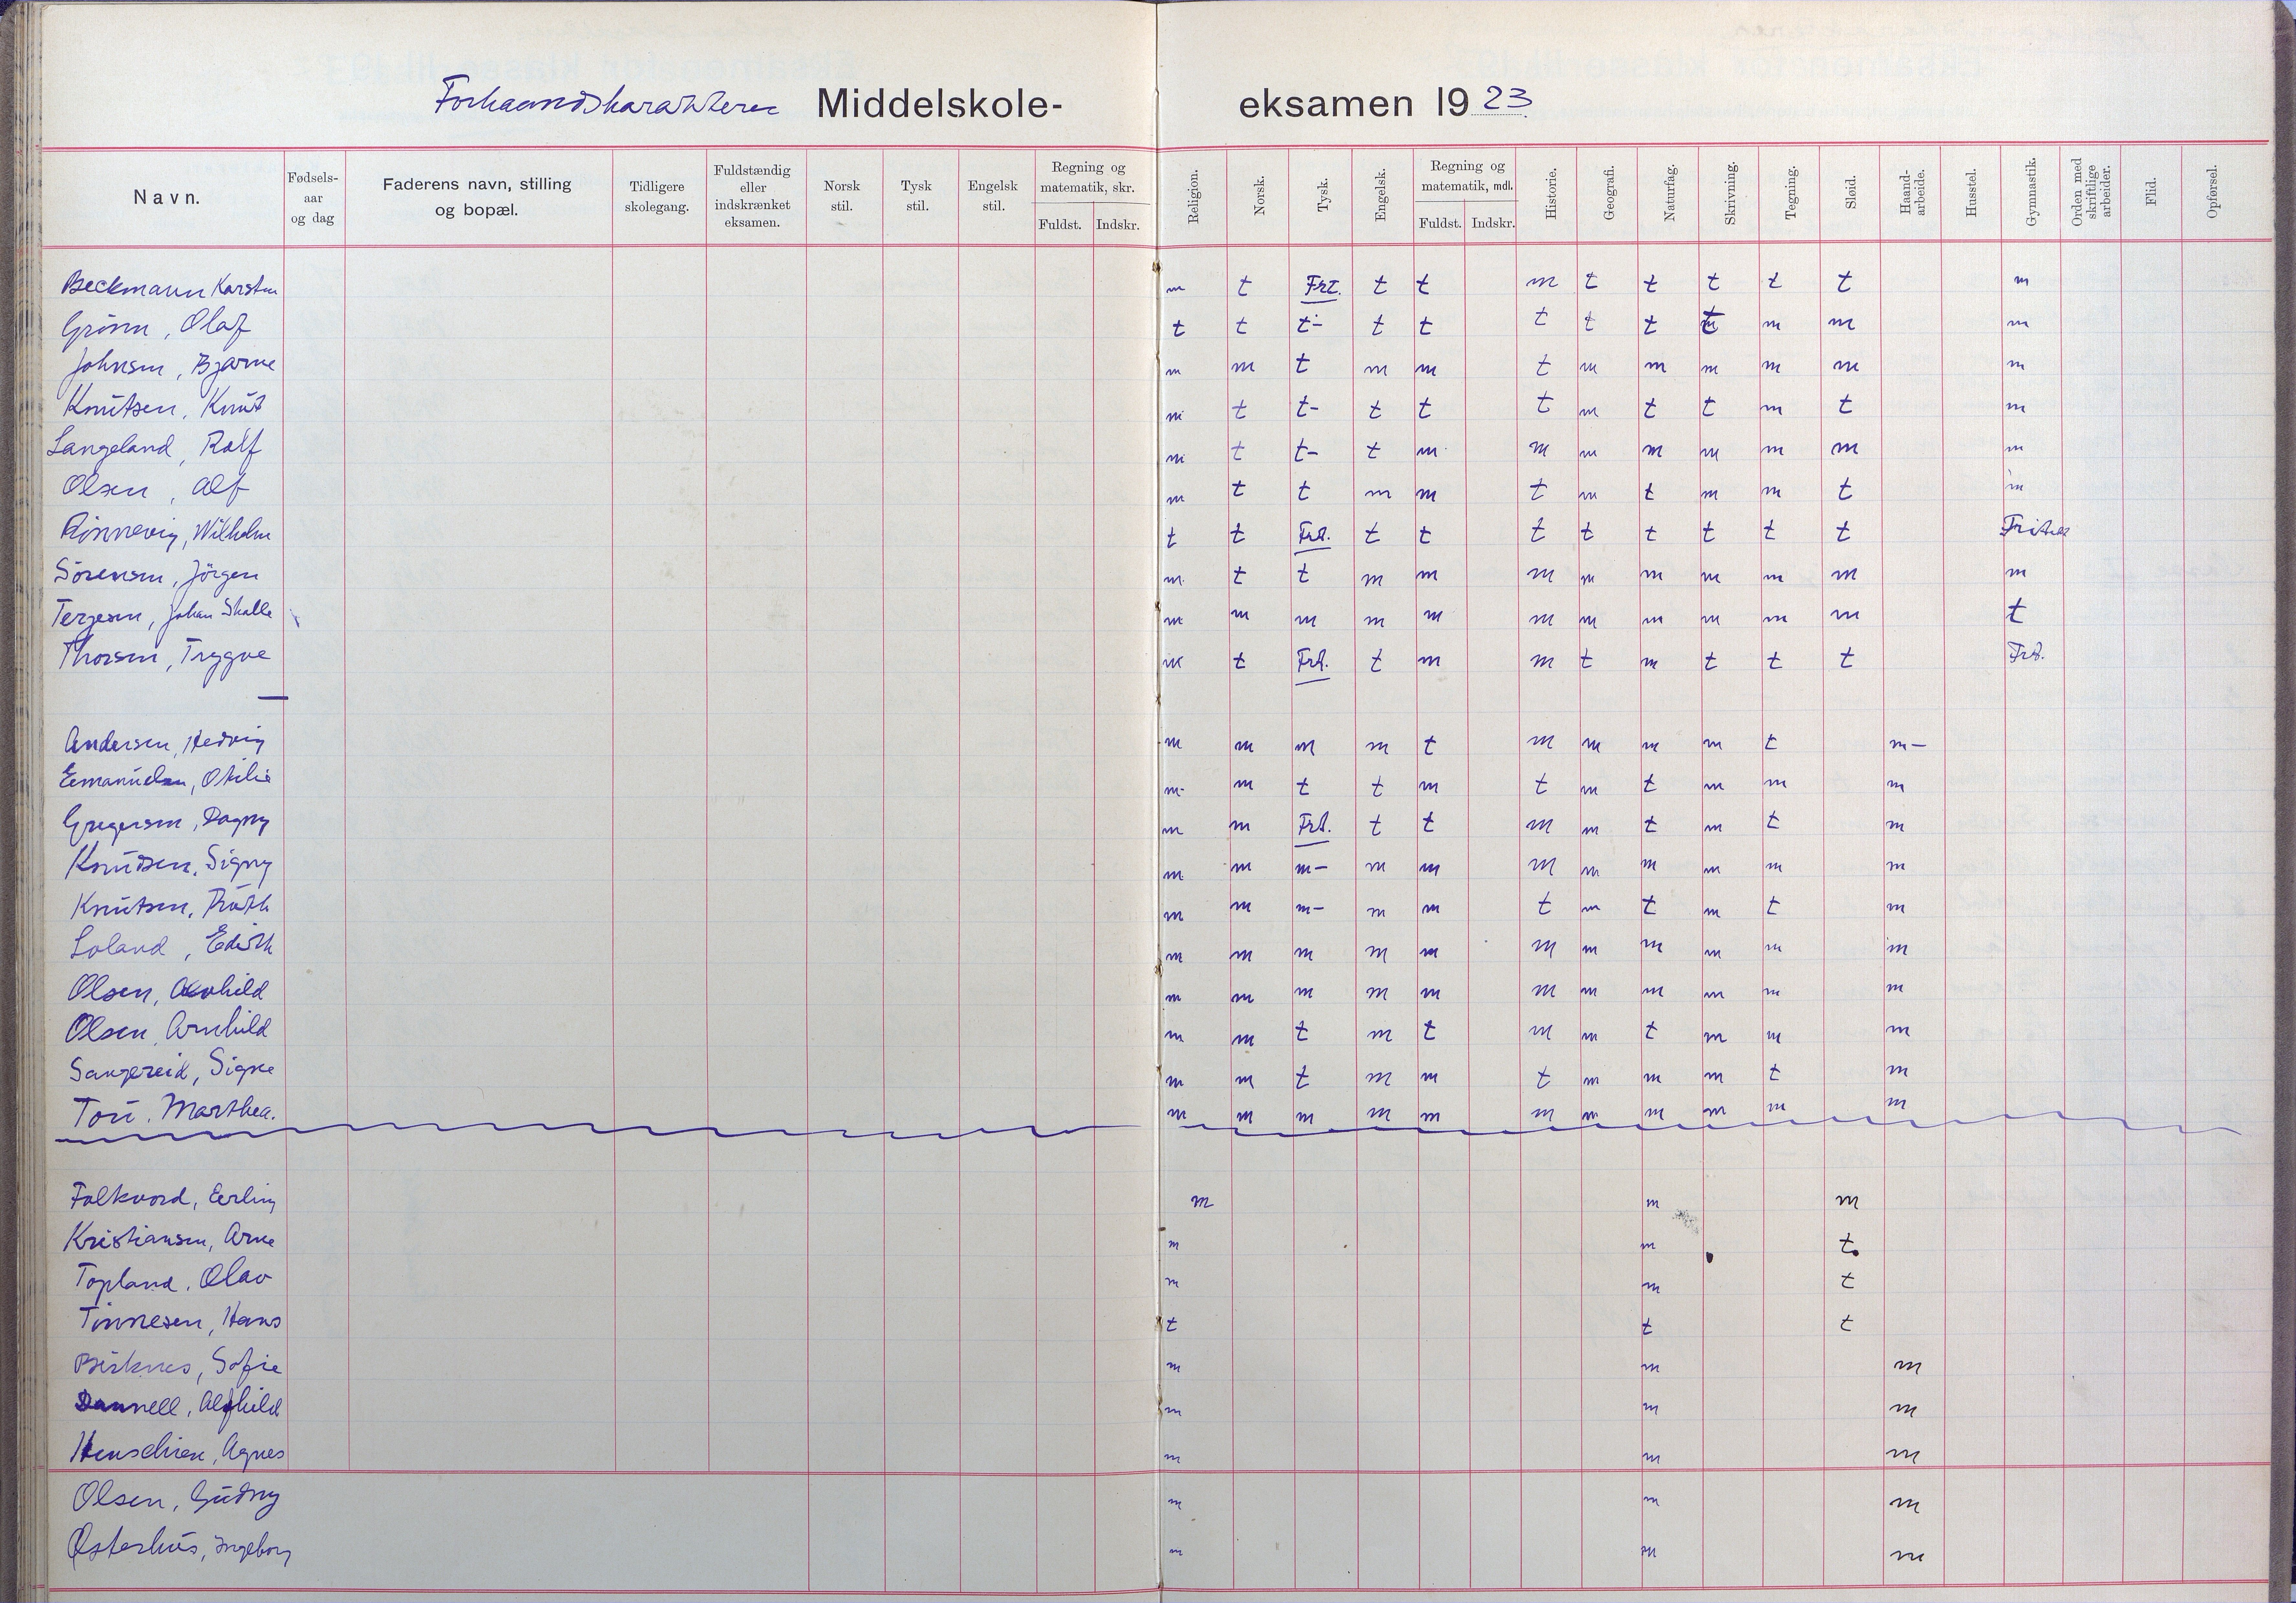 Forhaandskarakterer Middelskole-eksamen 1923
Navn. Fødsels-aar og dag Faderens navn, stilling og bopæl. Tidligere skolegang. Fuldstændig eller indskrænket eksamen. Norsk stil. Tysk stil. Engelsk stil. Regning og matematik, skr. Fuldst. Indskr. Religion. Norsk. Tysk. Engelsk. Regning og matematik, mdl. Fuldst. Indskr. Historie. Geografi. Naturfag. Skrivning. Tegning. Sløid. Haand-arbeide. Husstel. Gymnastik. Orden med skriftlige arbeider. Flid. Opførsel.
Beckmann Karsten m t Frt. t t m t t t t t m
Grönn, Olaf t t t- t t t t t t m m m
Johnsen, Bjarne m m t m m t m m m m m m
Knutsen, Knut m t t- t t t m t t m t m
Langeland, Rolf m t t- t m m m m m m m m
Olsen, Alf m t t m m t m t m m t m
Rönnevig, Wilhelm t t Frt. t t t t t t t t Fritatt
Sörensen, Jörgen m t t m m m m m m m m m
Terjesen, Johan Skalle m m m m m m m m m m m t
Thorsen, Trygve m t Frt. t m m t m t t t Frt.
Andersen, Hedvig m m m m t m m m m t m-
Emanuelsen, Otilie m m t t m t m t m m m
Gregersen, Dagny m m Frt. t t m m t m t m
Knudsen, Signy m m m- m m m m m m m m
Knutsen, Ruth m m m- m m t m t m t m
Loland, Edith m m m m m m m m m m m
Olsen, m m m m m m m m m m m
Olsen, Arnhild m m t m t m m t m m m
Saugereid, Signe m m t m m t m m m t m
Tou, Marthea. m m m m m m m m m m m
Folkvord, Erling m m m
Kristiansen, Arne m m t
Topland, Olav m m t
Tönnesen, Hans t t t
Birknes, Sofie m m m
Dannell, Alfhild m m m
Henschien, Agnes m m m
Olsen, Gudny m m m
Østerhus, Ingeborg m m m